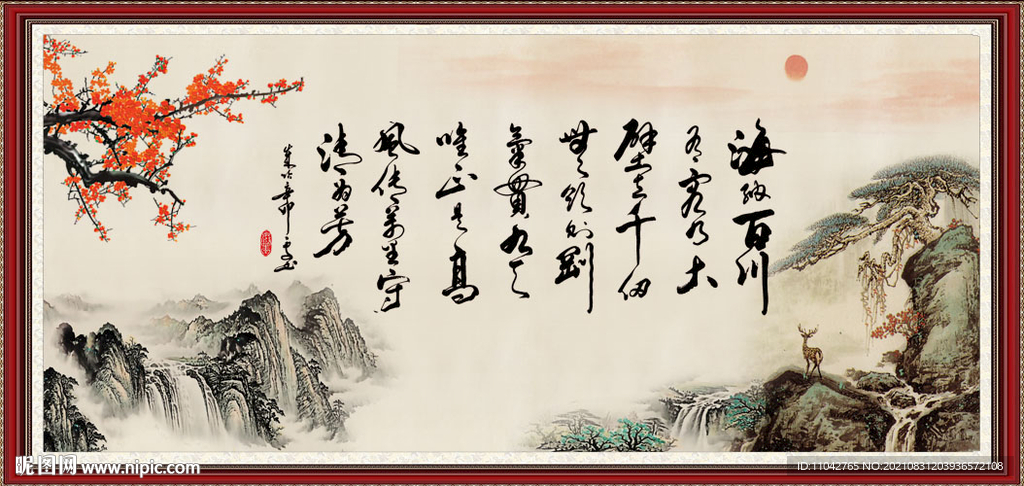 海納百川
有容乃大
壁立千仞
無欲則剛
氣貫九天
唯正是高
風傳萬里守
清為芳
昵图网 www.nipic.com
ID:11042765 NO:20210831203936572108